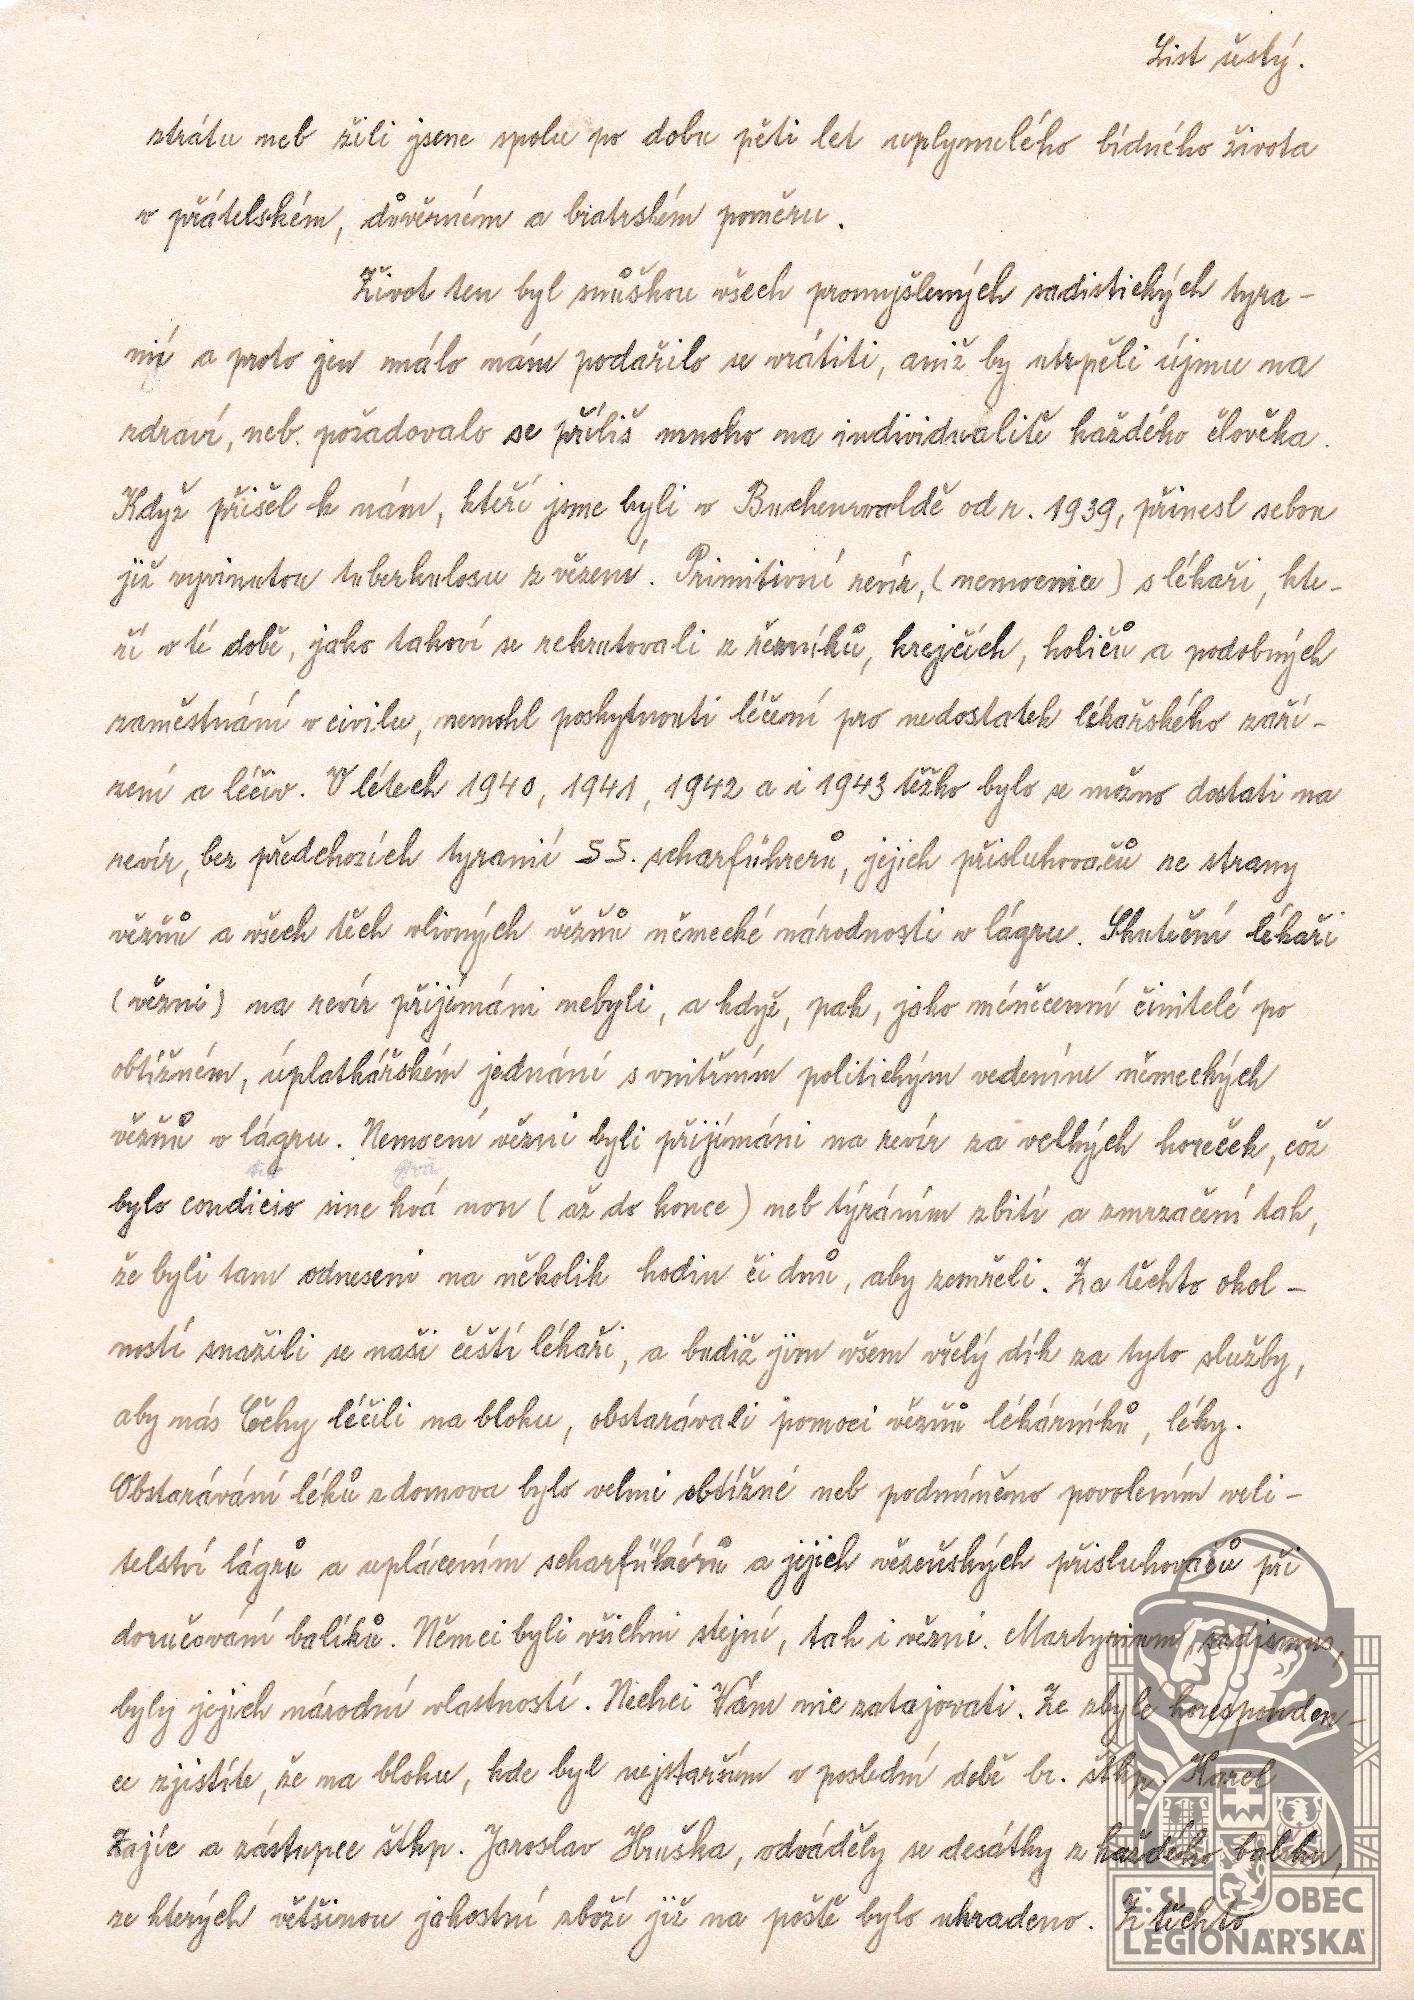 List šestý.
ztrátu neb žili jsme spolu po dobu pěti let uplynulého bídného života
v přátelském, důvěrném a bratrském poměru.
Život ten byl snůškou všech promyšlených sadistických tyra-
nií a proto jen málo nám podařilo se vrátiti, aniž by utrpěli újmu na
zdraví, neb. požadovalo se příliš mnoho na individualitě každého člověka.
Když přišel k nám, kteří jsme byli v Buchenwaldě od r. 1939, přinesl sebou
již vyvinutou tuberkulosu z vězení. Primitivní revír, (nemocnice) s lékaři, kte-
ří v té době, jako takoví se rekrutovali z řezníků, krejčích, holičů a podobných
zaměstnání v civilu, nemohl poskytnouti léčení pro nedostatek lékařského zaří-
zení a léčiv. V létech 1940, 1941, 1942 a i 1943 těžko bylo se možno dostati na
revír, bez předchozích tyranií SS. scharführerů, jejich přisluhovačů ze strany
vězňů a všech těch vlivných vězňů německé národnosti v lágru. Skuteční lékaři
(vězni) na revír přijímáni nebyli, a když, pak, jako méněcenní činitelé po
obtížném, úplatkářském jednání s vnitřním politickým vedením německých
vězňů v lágru. Nemocní vězni byli přijímáni na revír za velkých horeček, což
bylo condicio sine kvá non (až do konce) neb týráním zbití a zmrzačení tak,
že byli tam odneseni na několik hodin či dnů, aby zemřeli. Za těchto okol-
ností snažili se naši čeští lékaři, a budiž jim všem vřelý dík za tyto služby,
aby nás Čechy léčili na bloku, obstarávali pomocí vězňů lékárníků, léky.
Obstarávání léků z domova bylo velmi obtížné neb podmíněno povolením veli-
telství lágrů a uplácením scharführérů a jejich vězeňských přisluhovačů při
doručování balíků. Němci byli všichni stejní, tak i vězni. Martyrium, sadismus,
byly jejich národní vlastností. Nechci Vám nic zatajovati. Ze zbylé koresponden-
ce zjistíte, že na bloku, kde byl nejstarším v poslední době br. štkp. Karel
Zajíc a zástupce štkp. Jaroslav Hruška, odváděly se desátky z každého balíku,
ze kterých většinou jakostní zboží již na poště bylo ukradeno. Z těchto
Č.SL. OBEC
LEGIONÁŘSKÁ